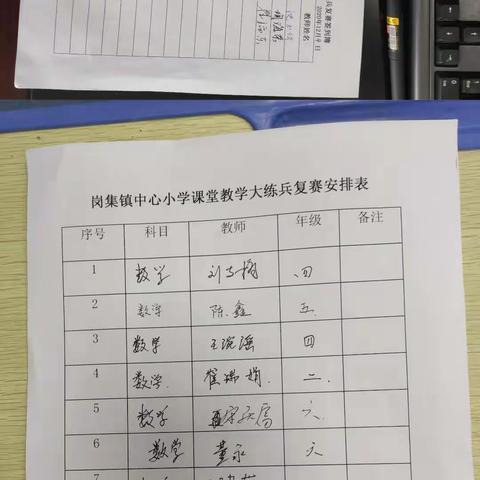 兵复赛签到簿
2020年12月9日
教师姓名
岗集镇中心小学课堂教学大练兵复赛安排表
序号 科目 教师 年级 备注
1 数学 四
2 数学 陈鑫 五
3 数学 王婉瑶 四
4 数学 崔瑞娟 二
5 数学 六
6 数学 董永 六
7